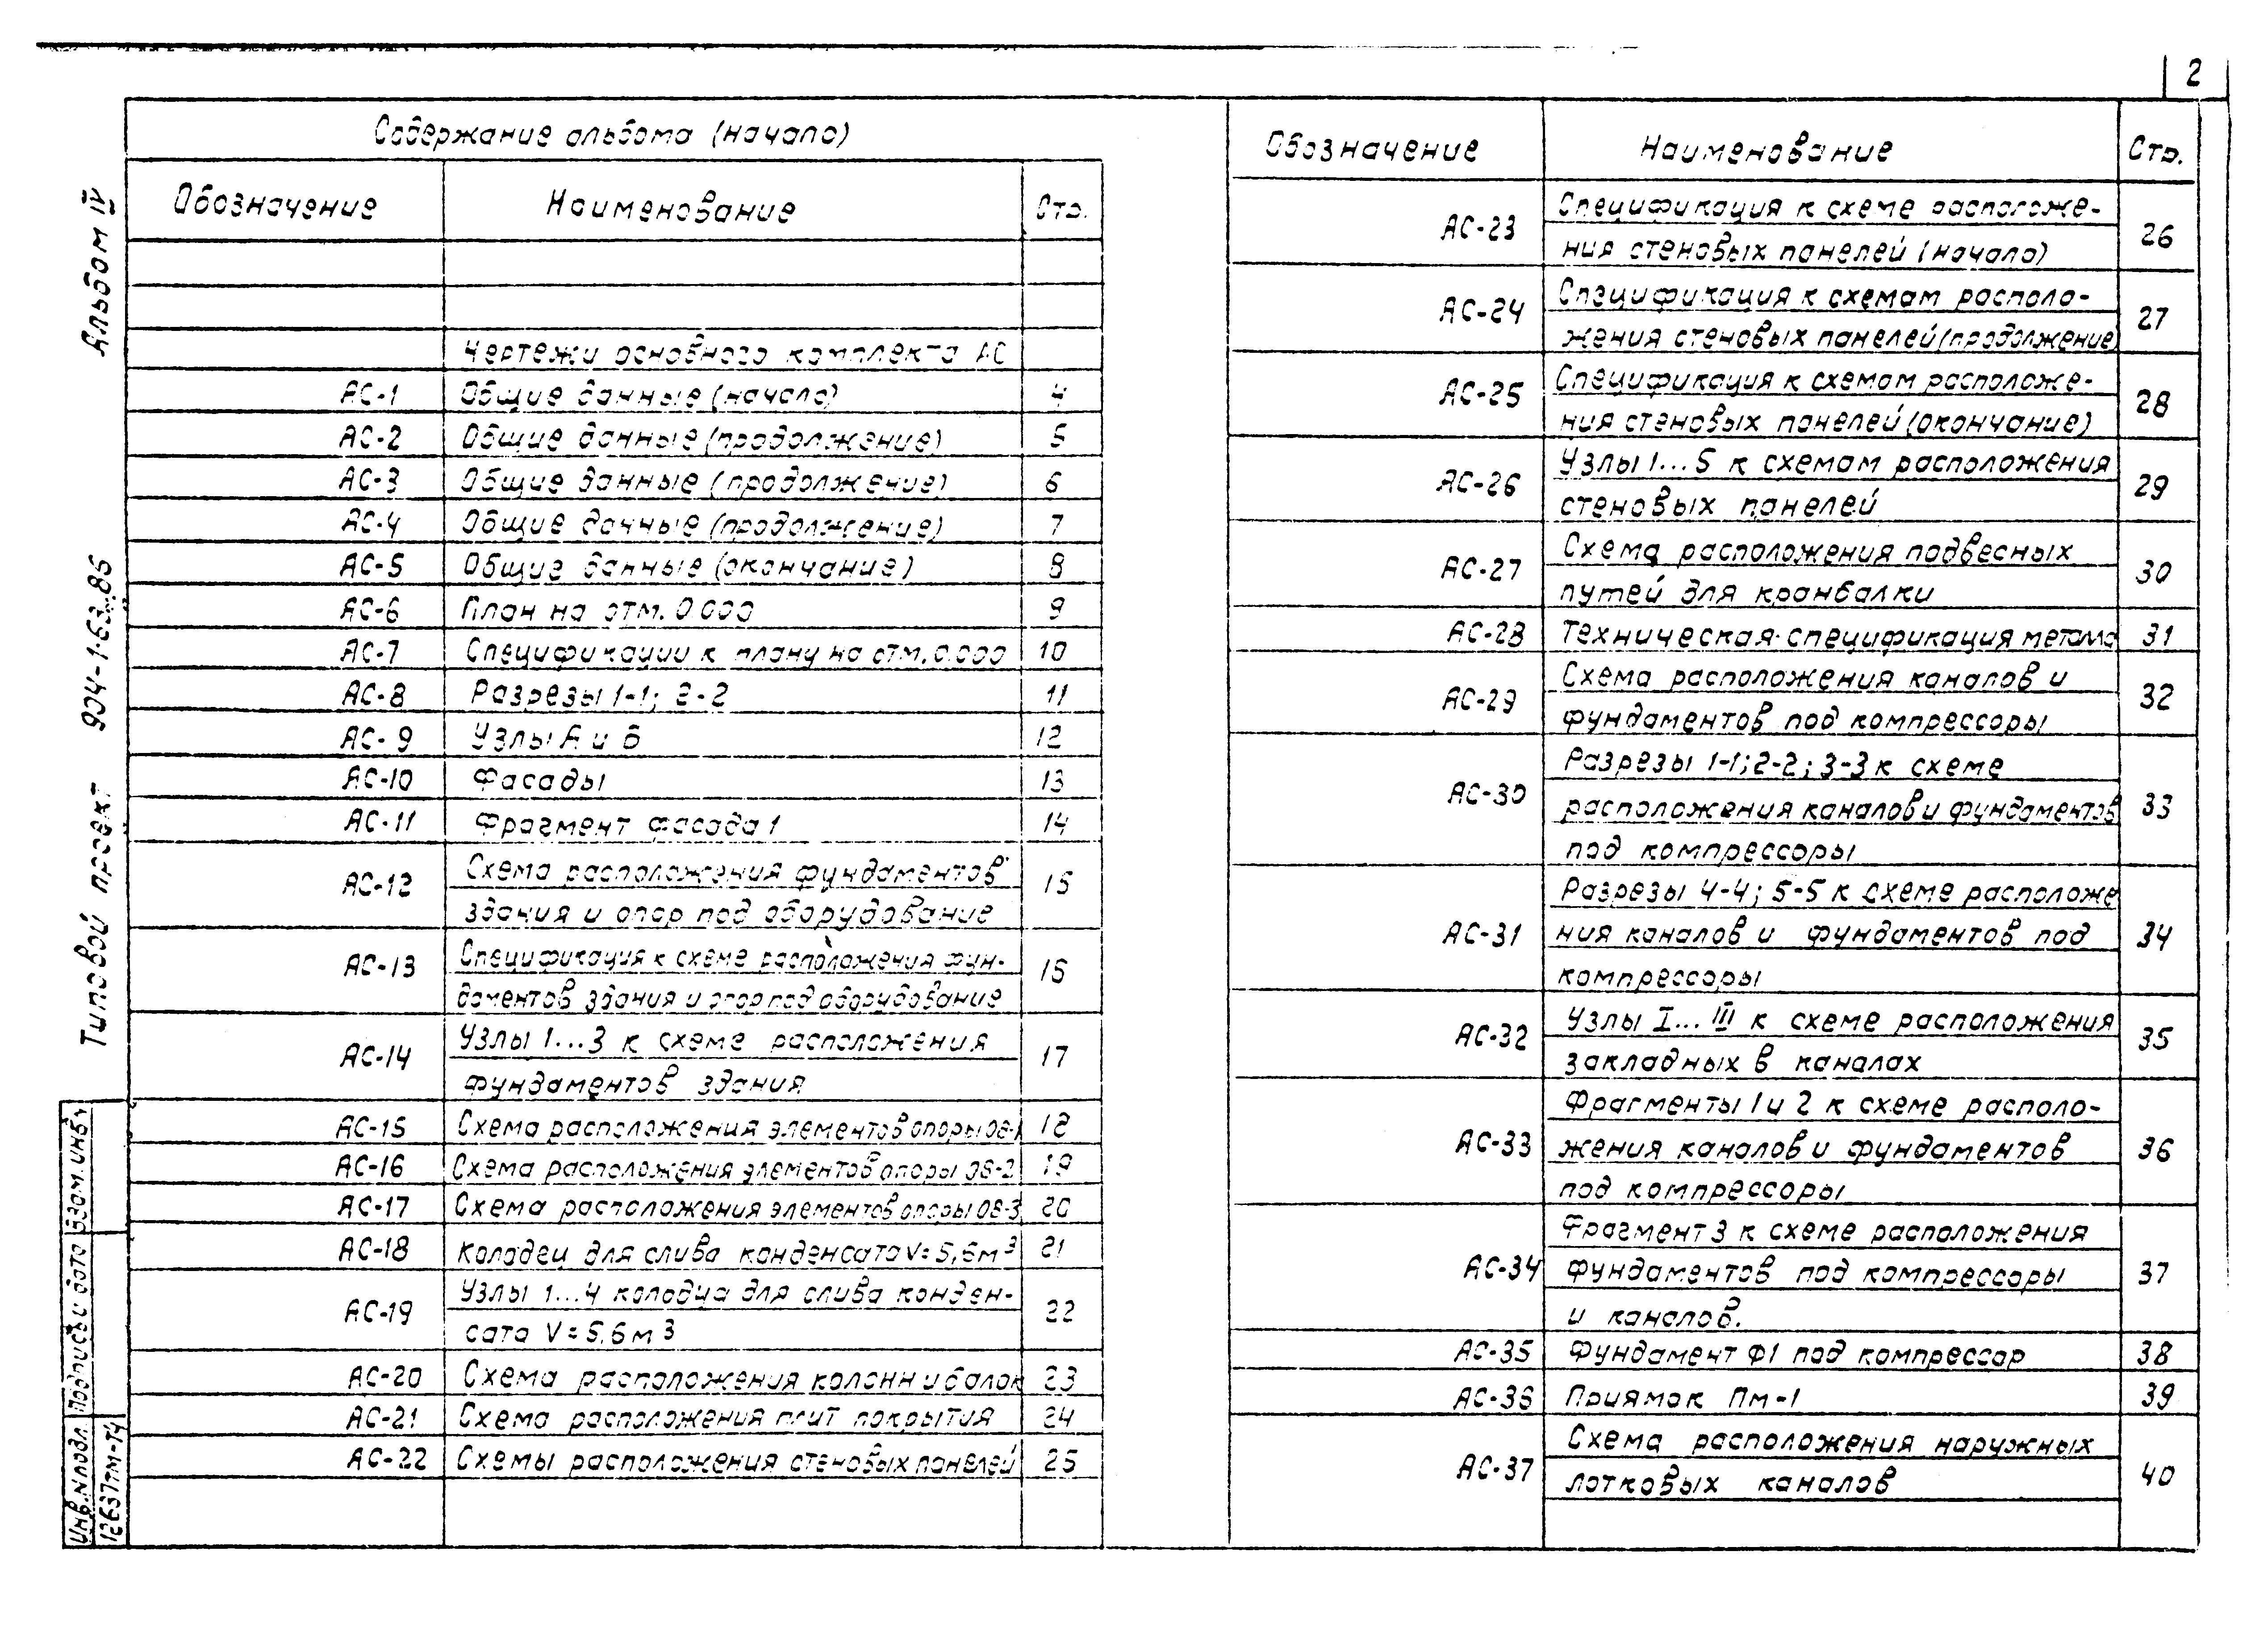 2
Содержание альбома (начало)
Обозначение Наименование Стр.
Чертежи основного комплекта АС
АС-1 Общие данные (начало) 4
АС-2 Общие данные (продолжение) 5
АС-3 Общие данные (продолжение) 6
АС-4 Общие данные (продолжение) 7
АС-5 Общие данные (окончание) 8
АС-6 План на отм. 0.000 9
АС-7 Спецификации к плану на отм. 0.000 10
АС-8 Разрезы 1-1; 2-2 11
АС-9 Узлы А и Б 12
АС-10 Фасады 13
АС-11 Фрагмент фасада 1 14
АС-12 Схема расположения фундаментов 15
здания и опор под оборудование
АС-13 Спецификация к схеме расположения фун- 16
даментов здания и опор под оборудование
АС-14 Узлы 1...3 к схеме расположения 17
фундаментов здания
АС-15 Схема расположения элементов опоры ОВ-1 18
АС-16 Схема расположения элементов опоры ОВ-2 19
АС-17 Схема расположения элементов опоры ОВ-3 20
АС-18 Колодец для слива конденсата V=5,6м³ 21
АС-19 Узлы 1...4 колодца для слива конден- 22
сата V=5,6м³
АС-20 Схема расположения колонн и балок 23
АС-21 Схема расположения плит покрытия 24
АС-22 Схемы расположения стеновых панелей 25
Обозначение Наименование Стр.
АС-23 Спецификация к схеме расположе- 26
ния стеновых панелей (начало)
АС-24 Спецификация к схемам располо- 27
жения стеновых панелей (продолжение)
АС-25 Спецификация к схемам расположе- 28
ния стеновых панелей (окончание)
АС-26 Узлы 1...5 к схемам расположения 29
стеновых панелей
АС-27 Схема расположения подвесных 30
путей для кранбалки
АС-28 Техническая спецификация металла 31
АС-29 Схема расположения каналов и 32
фундаментов под компрессоры
АС-30 Разрезы 1-1; 2-2; 3-3 к схеме 33
расположения каналов и фундаментов
под компрессоры
АС-31 Разрезы 4-4; 5-5 к схеме расположе 34
ния каналов и фундаментов под
компрессоры
АС-32 Узлы I...III к схеме расположения 35
закладных в каналах
АС-33 Фрагменты 1 и 2 к схеме располо- 36
жения каналов и фундаментов
под компрессоры
АС-34 Фрагмент 3 к схеме расположения 37
фундаментов под компрессоры
и каналов.
АС-35 Фундамент Ф1 под компрессор 38
АС-36 Приямок Пм-1 39
АС-37 Схема расположения наружных 40
лотковых каналов
Типовой проект 904-1-63.85 Альбом IV
Инв.№подл. Подпись и дата Взам.инв.№
12637тм-т4